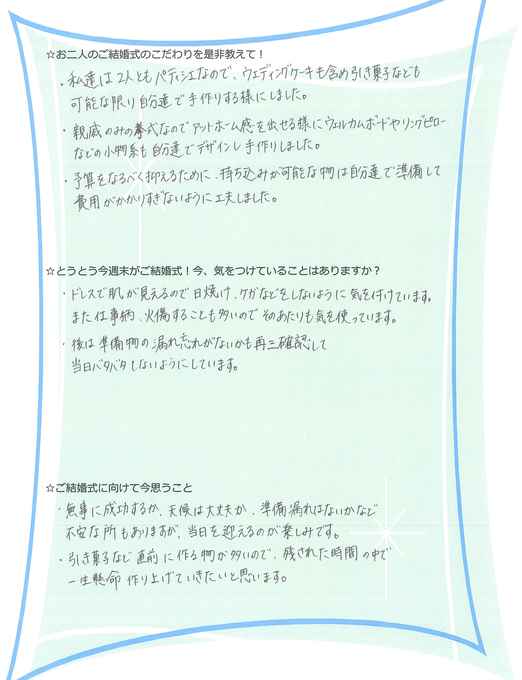 ☆お二人のご結婚式のこだわりを是非教えて！
・私達は2人ともパティシエなので、ウェディングケーキも含め引き菓子なども
可能な限り自分達で手作りする様にしました。
・親戚のみの挙式なのでアットホーム感を出せる様にウェルカムボードやリングピロー
などの小物系も自分達でデザインし手作りしました。
・予算をなるべく抑えるために、持ち込みが可能な物は自分達で準備して
費用がかかりすぎないように工夫しました。
☆とうとう今週末がご結婚式！今、気をつけていることはありますか？
・ドレスで肌が見えるので日焼け、ケガなどをしないように気を付けています。
また仕事柄、火傷することも多いのでそのあたりも気を使っています。
・後は準備物の漏れ忘れがないかも再三確認して
当日バタバタしないようにしています。
☆ご結婚式に向けて今思うこと
・無事に成功するか、天候は大丈夫か、準備漏れはないかなど
不安な所もありますが、当日を迎えるのが楽しみです。
・引き菓子など直前に作る物が多いので、残された時間の中で
一生懸命作り上げていきたいと思います。